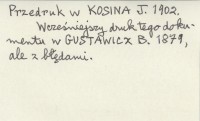 Przedruk w KOSINA J. 1902.
Wcześniejszy druk tego doku-
mentu w GUSTAWICZ B. 1879,
ale z błędami.